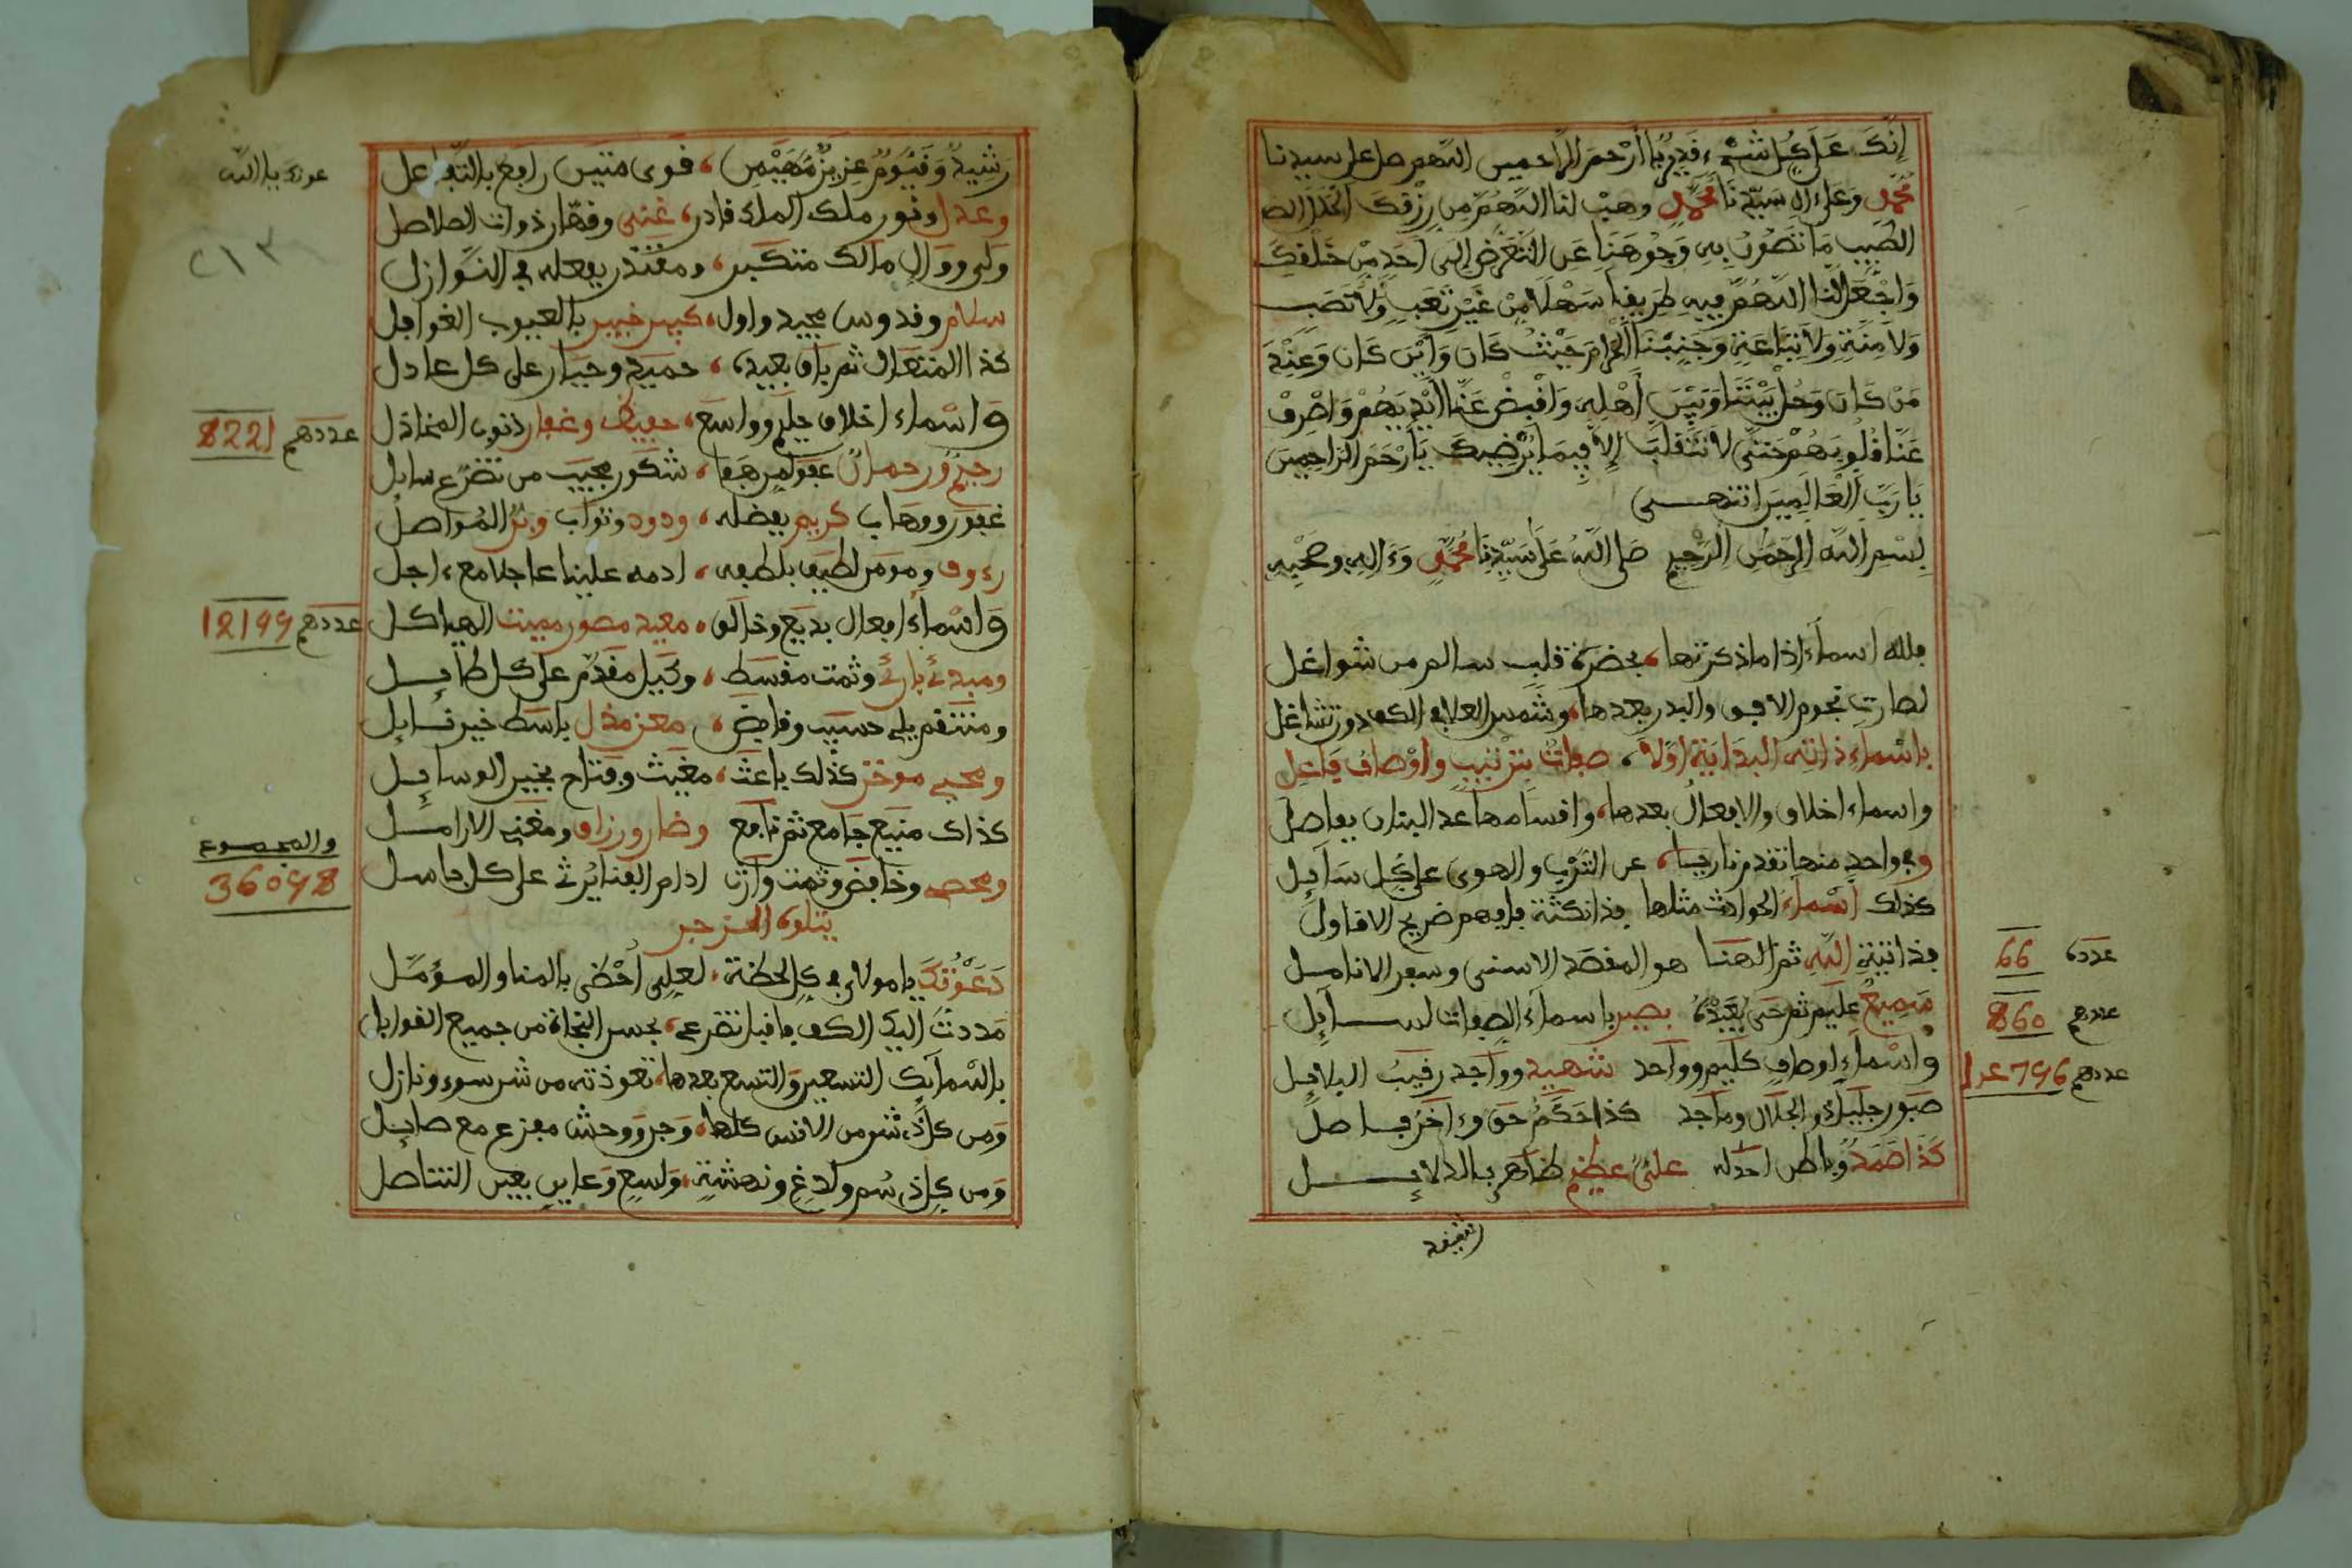 إنك على كل شيء قدير يا أرحم الراحمين اللهم صل على سيدنا
محمد وعلى ءال سيدنا محمد وهب لنا اللهم من رزقك الحلال
الطيب ما تصون به وجوهنا عن التعرض إلى أحد من خلقك
واجعل لنا اللهم فيه طريقا سهلا من غير تعب ولا نصب
ولا منة ولا تباعة وجنبنا الحرام حيث كان وأين كان وعند
من كان وحل بيننا وبين أهله واقبض عنا أيديهم واصرف
عنا قلوبهم حتى لا نتقلب إلا فيما يرضيك يا أرحم الراحمين
يا رب العالمين انتهى
بسم الله الرحمن الرحيم صلى الله على سيدنا محمد وءاله وصحبه
فلله أسماء إذا ما ذكرتها بحضرة قلب سالم من شواغل
لصارت نجوم الافق والبدر بعدها وشمس العلا في الكف دون تشاغل
بأسماء ذاته البداية اولا صفات بترتيب وأوصاف فاعل
واسماء اخلاق والافعال بعدها واقسامها عد البنان بفاصل
وفي واحد منها تقدم نارها عن الترب والهوى على كل سائل
كذلك أسماء الحوادث مثلها
فذاتية الله ثم الهنا هو المقصد الاسنى وسعر الانامل
عدده 66
سميع عليم ثم حي بعيده بصير بأسماء الصفات لسائل
عددهم 860
وأسماء اوصاف كليم وواحد شهيد وواجد رقيب البلابل
عددهم 796
صبور جليل ذو الجلال وماجد كذا حكم حق وءاخر فاصل
كذا صمد وباطن احد له علي عظيم ظاهر بالدلايل
رشيد
رشيد وقيوم عزيز مهيمن قوي متين رافع بالتفاعل
وعدل ونور ملك الملك قادر غني وقهار ذوات الصلاصل
٢١٣
ولي ووال مالك متكبر ومقتدر بفعله في النوازل
سلام وقدوس مجيد واول كبير خبير بالعيوب الغوافل
كذا المتعال ثم باق بعيده حميد وجبار على كل عادل
واسماء اخلاق حليم وواسع حفيظ وغفار ذنوب المخاذل
عددهم 8221
رحيم ورحمان عفو لمن هفا شكور مجيب من تضرع سايل
غفور ووهاب كريم بفضله ودود وتواب وبر المواصل
رءوف ومومن لطيف بلطفه ادمه علينا عاجلا مع ءاجل
واسماء افعال بديع وخالق معيد مصور مميت الهياكل
عددهم 12199
ومبدئ بارئ وثمت مقسط وكيل مقدم على كل طايل
ومنتقم يلي حسيب وقابض معز مذل باسط خير نايل
ومحيي موخر كذلك باعث مغيث وفتاح بخير الوسايل
كذاك منيع جامع ثم نافع وضار ورزاق ومغني الارامل
والمجموع
36098
ومحص وخافض وثمت وارث ادام الفنا يرث على كل جاسل
يتلوه الحزجر
دعوتك يا مولاي في كل لحظة لعلي أحظى بالمنا والمؤمل
مددت اليك الكف فاقبل تضرعي بحسن النجاة من جميع الغوايل
باسمايك التسعين والتسع بعدها تعوذت من شر سوء ونازل
ومن كل ذي شر من الانس كلها وجن ووحش مفزع مع صايل
ومن كل ذي سم ولدغ ونهشة ولسع وعاين بعين التناصل